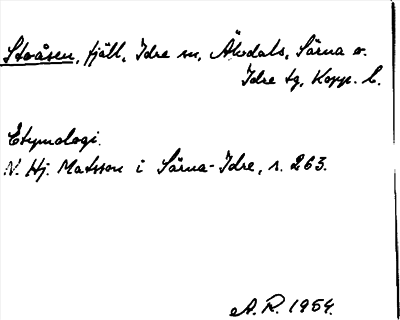 Stoåsen, fjäll, Idre sn, Älvdals, Särna o.
Idre tg, Kopp. l.
Etymologi.
N. Hj. Matsson i Särna-Idre, s. 263.
A. R. 1954.